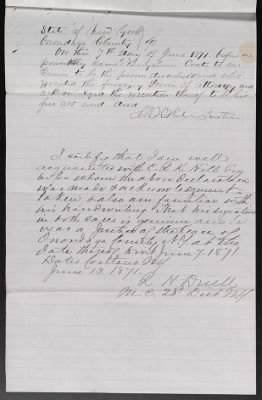 State of New York
Onondaga County
On this 7th day of June 1871 before
personally came Benjamin to me
known to be the person described in and who
executed the foregoing Power of Attorney and
acknowledged the execution thereof to be his
free act and deed
Justice
I certify that I am well
acquainted with C. R. K. Esq
before whom the above Declaration
was made & acknowledgment
taken & also am familiar with
his handwriting that his signature
in both cases is genuine and he
was a Justice of the Peace of
Onondaga County N.Y. at the
date thereof June 7, 1871.
Dated Cortland N.Y
June 13, 1871.
R H Duell
M.C. 23 Dist N.Y